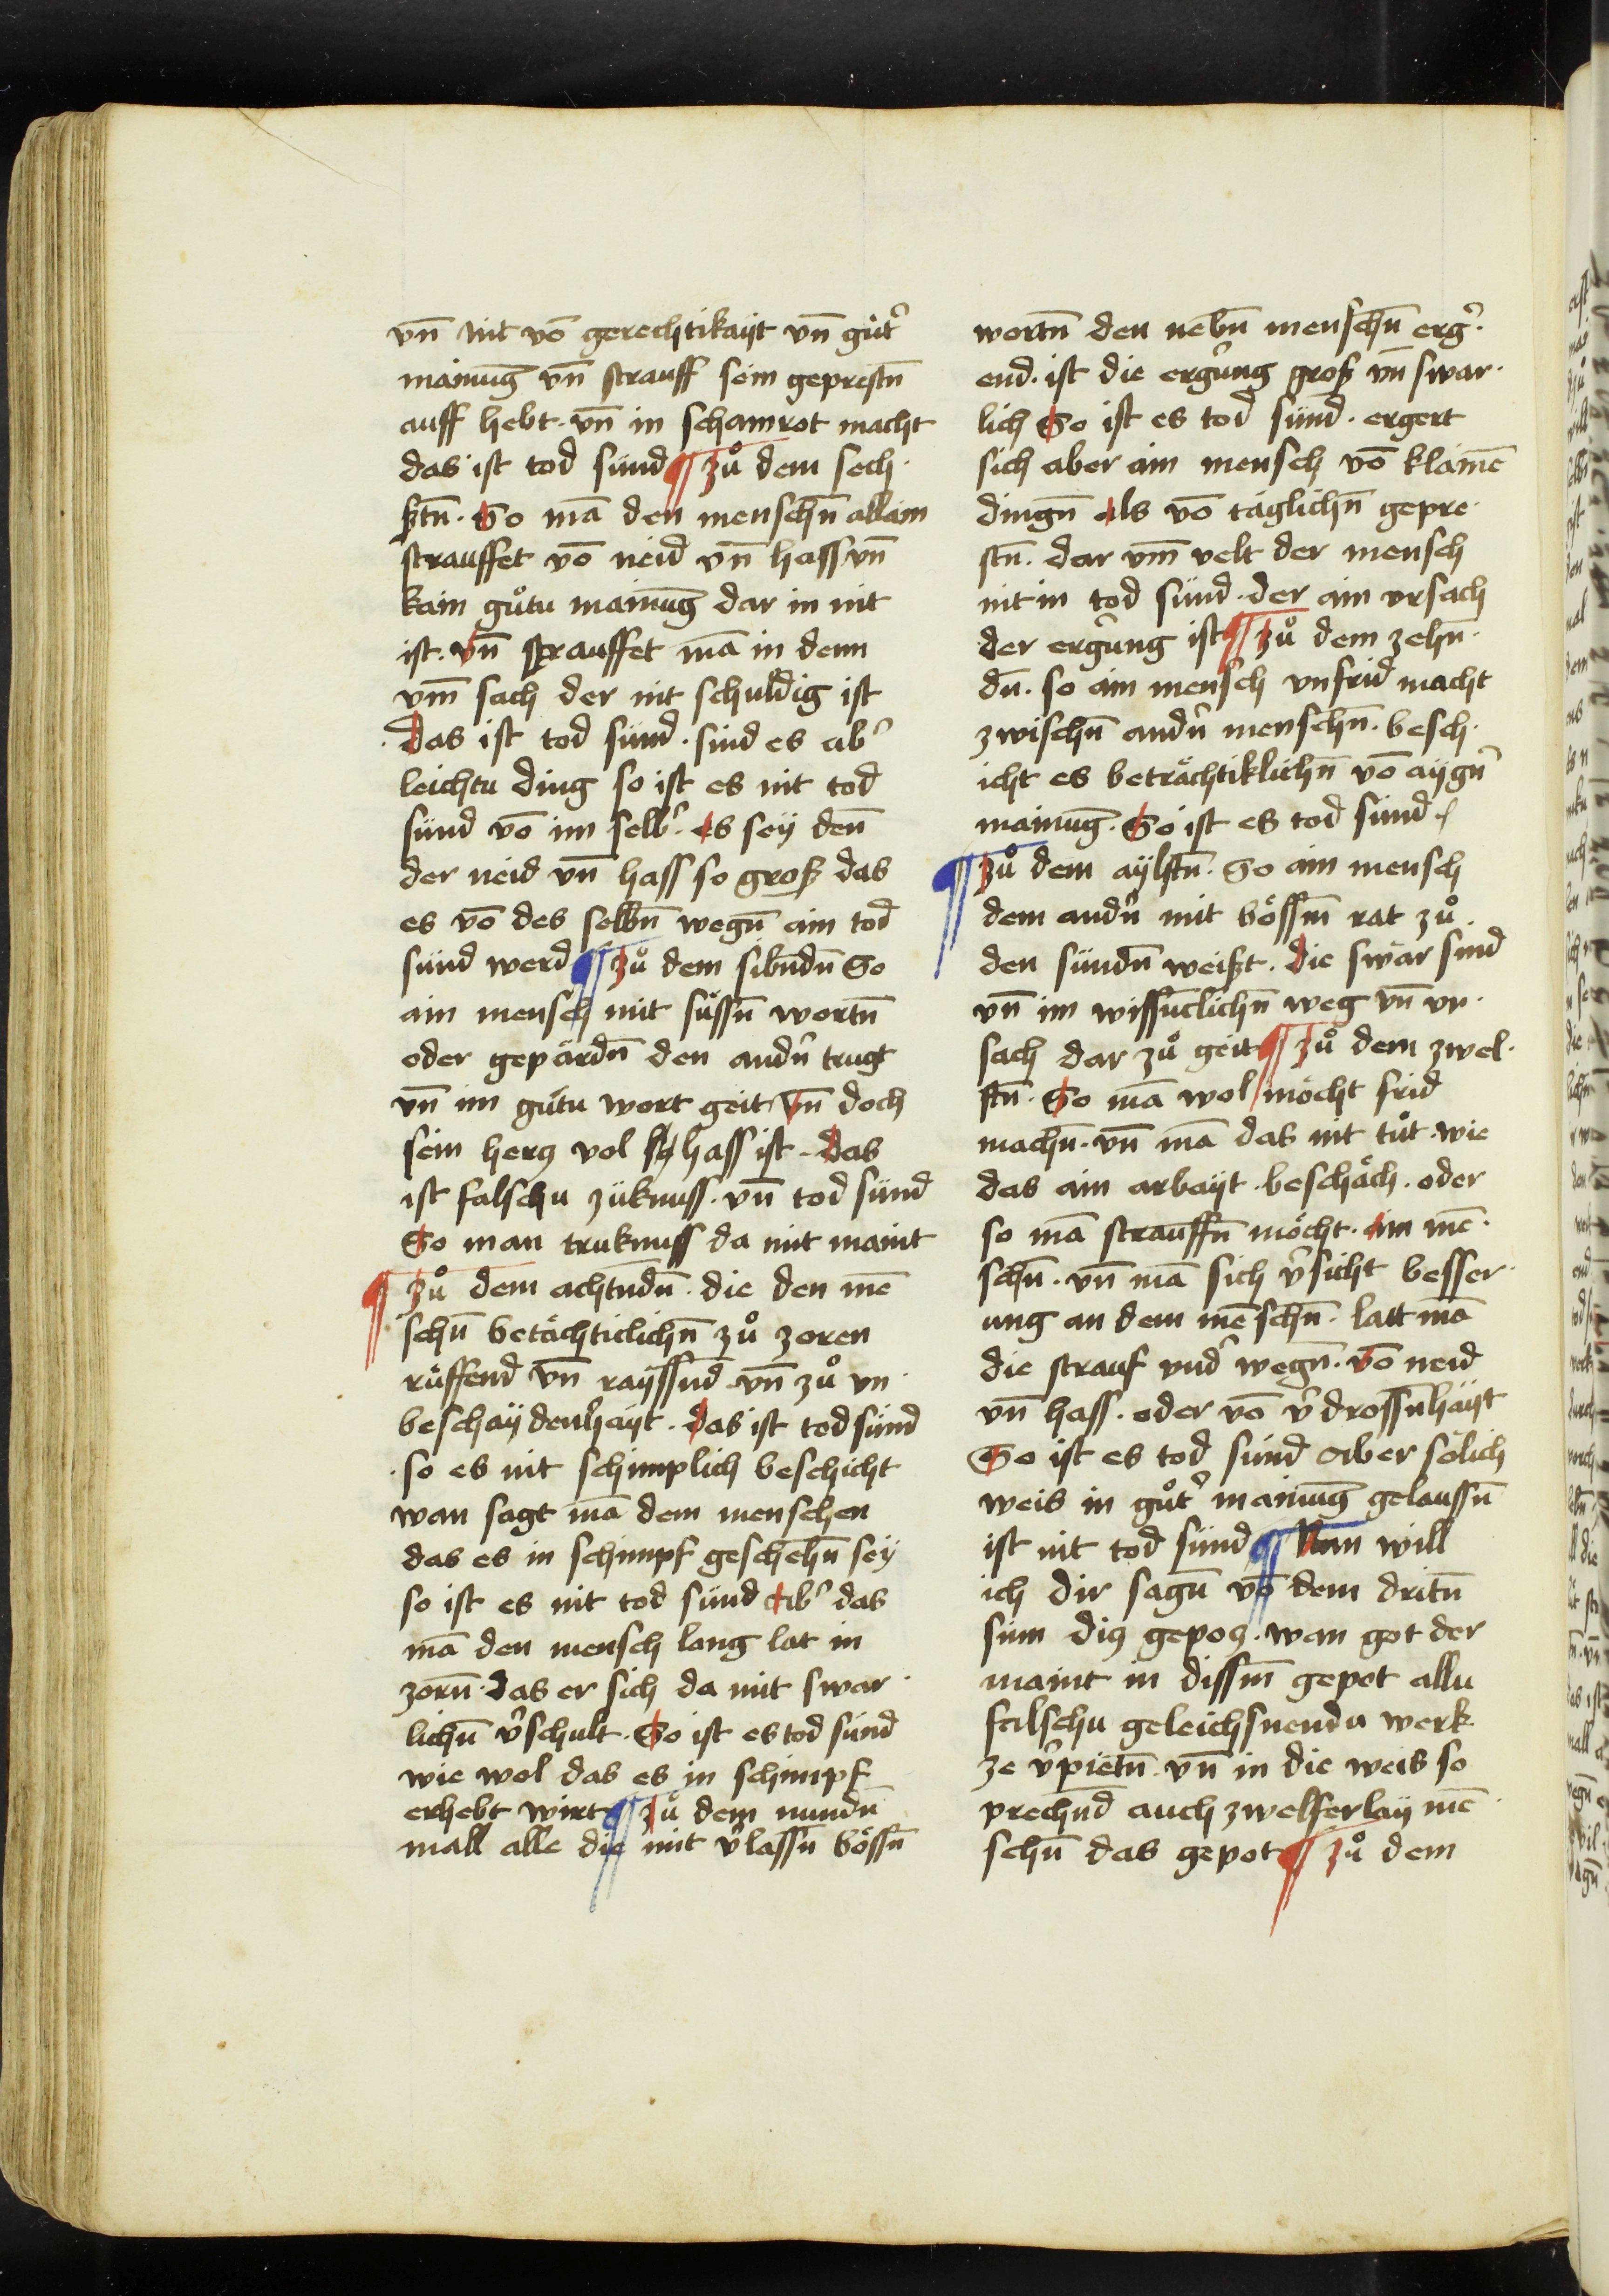 vn̄ nit vō gerechtikaÿt vn̄ gůt᷑
mainūg vn̄ strauff sein geprestn̄
auff hebt · vn̄ in schamrot macht
das ist tod sünd ¶ Zů dem sech ·
ßtn̄ · So mā den menschn̄ allain
strauffet vō neid vn̄ hass vn̄
kain gůtu mainūg dar in nit
ist · vn̄ strauffet mā in denn
vm̄ sach der nit schuldig ist
· Das ist tod sünd · sind es ab᷑
leichtu ding so ist es nit tod
sünd vō im selb᷑ · es seÿ den̄
der neid vn̄ hass so groß das
es vō des selbn̄ wegn̄ ain tod
sünd werd ¶ Zů dem sibn̄dn̄ So
ain mensch mit sůssn̄ wortn̄
oder gepärdn̄ den and᷑n trugt
vn̄ im gůtu wort geit vn̄ doch
sein hercz vol hass ist · das
ist falschu züknuss · vn̄ tod sünd
So man truknuss da mit maint
¶ Zů dem achtn̄dn̄ · die den mē
schn̄ betächticlichn̄ zů zoren
rüffend vn̄ raÿssn̄d · vn̄ zů vn ·
beschaÿdenhaÿt · das ist tod sünd
· so es nit schimplich beschicht
wan sagt mā dem menschen
das es in schimpf geschehn̄ seÿ
so ist es nit tod sünd Ab᷑ das
mā den mensch lang lat in
zorn̄ · das er sich da mit swar ·
lichn̄ v᷑schult · So ist es tod sünd
wie wol das es in schimpf
erhebt wirt ¶ Zů dem nundn̄
mall alle die mit v᷑lassn̄ bössn̄
wortn̄ den nebn̄ menschn̄ erg᷑ ·
end · ist die erg᷑ung groß vn̄ swar ·
lich So ist es tod sünd · ergert
sich aber ain mensch vō klainē
dingn̄ als vō täglichn̄ gepre ·
stn̄ · dar vm̄ velt der mensch
nit in tod sünd · der ain vrsach
der erg᷑ung ist ¶ Zů dem zehn̄ ·
dn̄ · so ain mensch vnfrid macht
zwischn̄ and᷑n menschn̄ · besch ·
icht es beträchtiklichn̄ vō aÿgn᷑
mainūg · So ist es tod sünd ·
¶ Zů dem aÿlftn̄ · So ain mensch
dem and᷑n mit bössm̄ rat zů ·
den sündn̄ weißt · die swär sind
vn̄ im wissn̄clichn̄ weg vn̄ vr ·
sach dar zů geit ¶ Zů dem zwel ·
ftn̄ · So mā wol möcht frid
machn̄ · vn̄ mā das nit tůt · wie
das ain arbaÿt · beschäch · oder
so mā strauffn̄ möcht · ain mē ·
schn̄ · vn̄ mā sich v᷑sicht besser ·
ung an dem mēschn̄ · latt mā
die strauf vnd᷑ wegn̄ · vō neid
vn̄ hass · oder vō v᷑drossn̄haÿt
So ist es tod sünd Aber sölich
weis in gůt᷑ mainūg gelaussn̄
ist nit tod sünd ¶ Nun will
ich dir sagn̄ vō dem dritn̄
sinn dicz gepocz · wan got der
maint in dissm̄ gepot allu
falschu geleichsnendu werk
ze v᷑pietn̄ · vn̄ in die weis so
prechn̄d auch zwelferlaÿ mē ·
schn̄ das gepot ¶ Zů dem